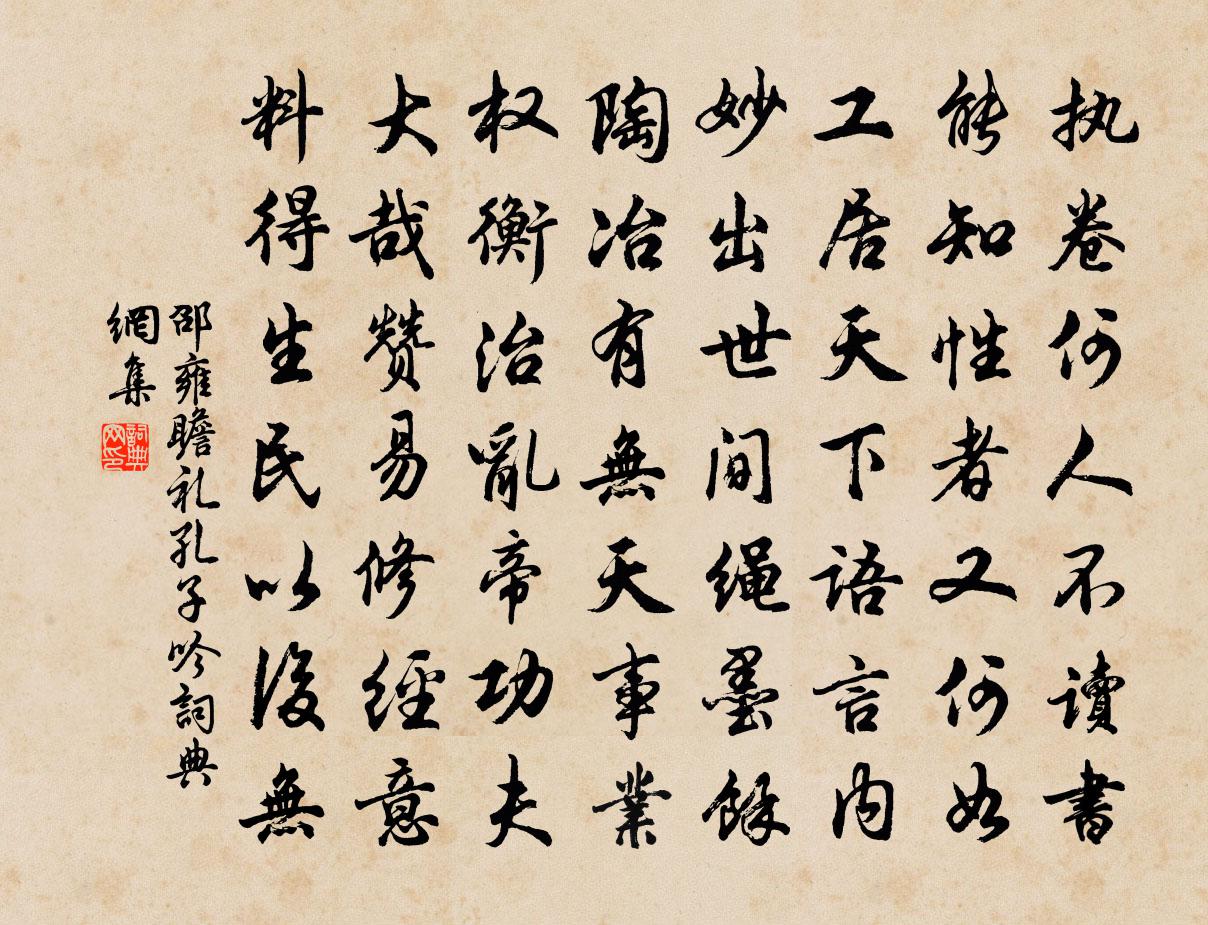 执卷何人不讀書
能知性者又何如
工居天下語言内
妙出世间绳墨餘
陶冶有無天事業
权衡治亂帝功夫
大哉赞易修經意
料得生民以後無
邵雍瞻礼孔子吟詞典
網集
詞典
网印